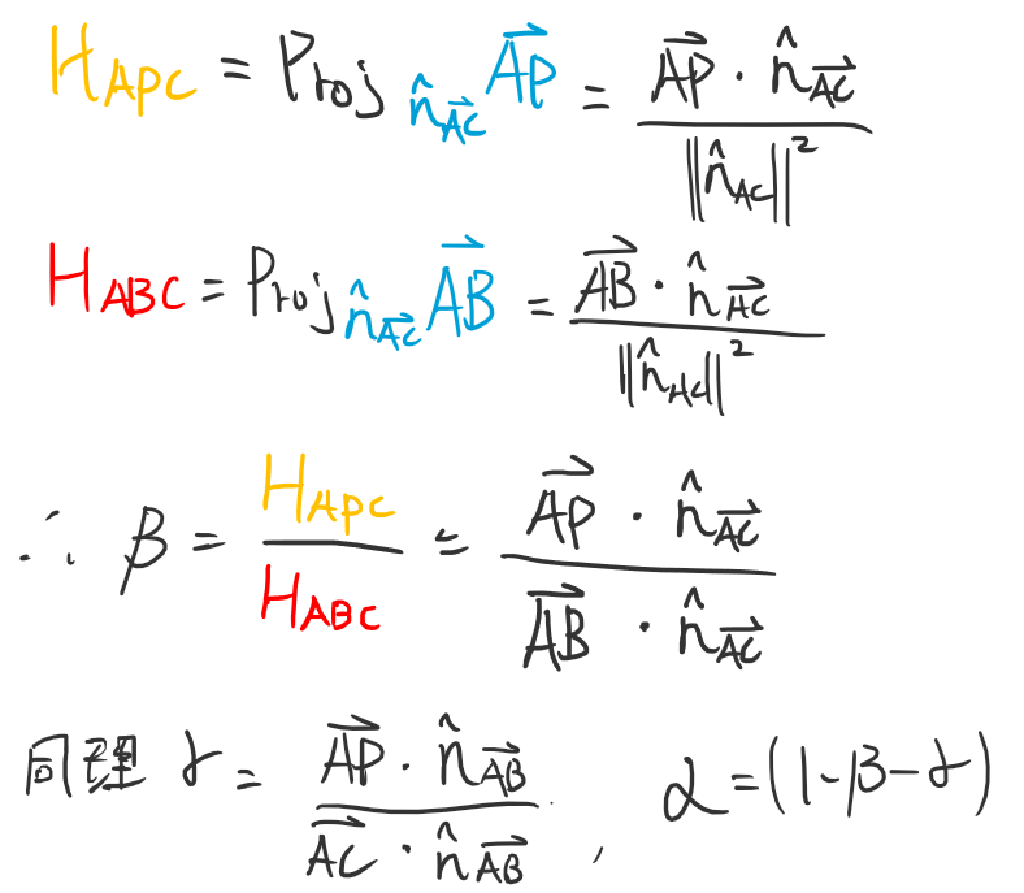 $H_{APC} = Proj_{\hat{n}_{\overrightarrow{AC}}} \overrightarrow{AP} = \frac{\overrightarrow{AP} \cdot \hat{n}_{\overrightarrow{AC}}}{\|\hat{n}_{AC}\|^2}$
$H_{ABC} = Proj_{\hat{n}_{\overrightarrow{AC}}} \overrightarrow{AB} = \frac{\overrightarrow{AB} \cdot \hat{n}_{\overrightarrow{AC}}}{\|\hat{n}_{AC}\|^2}$
$\therefore \beta = \frac{H_{APC}}{H_{ABC}} = \frac{\overrightarrow{AP} \cdot \hat{n}_{\overrightarrow{AC}}}{\overrightarrow{AB} \cdot \hat{n}_{\overrightarrow{AC}}}$
同理 $\gamma = \frac{\overrightarrow{AP} \cdot \hat{n}_{\overrightarrow{AB}}}{\overrightarrow{AC} \cdot \hat{n}_{\overrightarrow{AB}}}$ , $\alpha = (1-\beta-\gamma)$